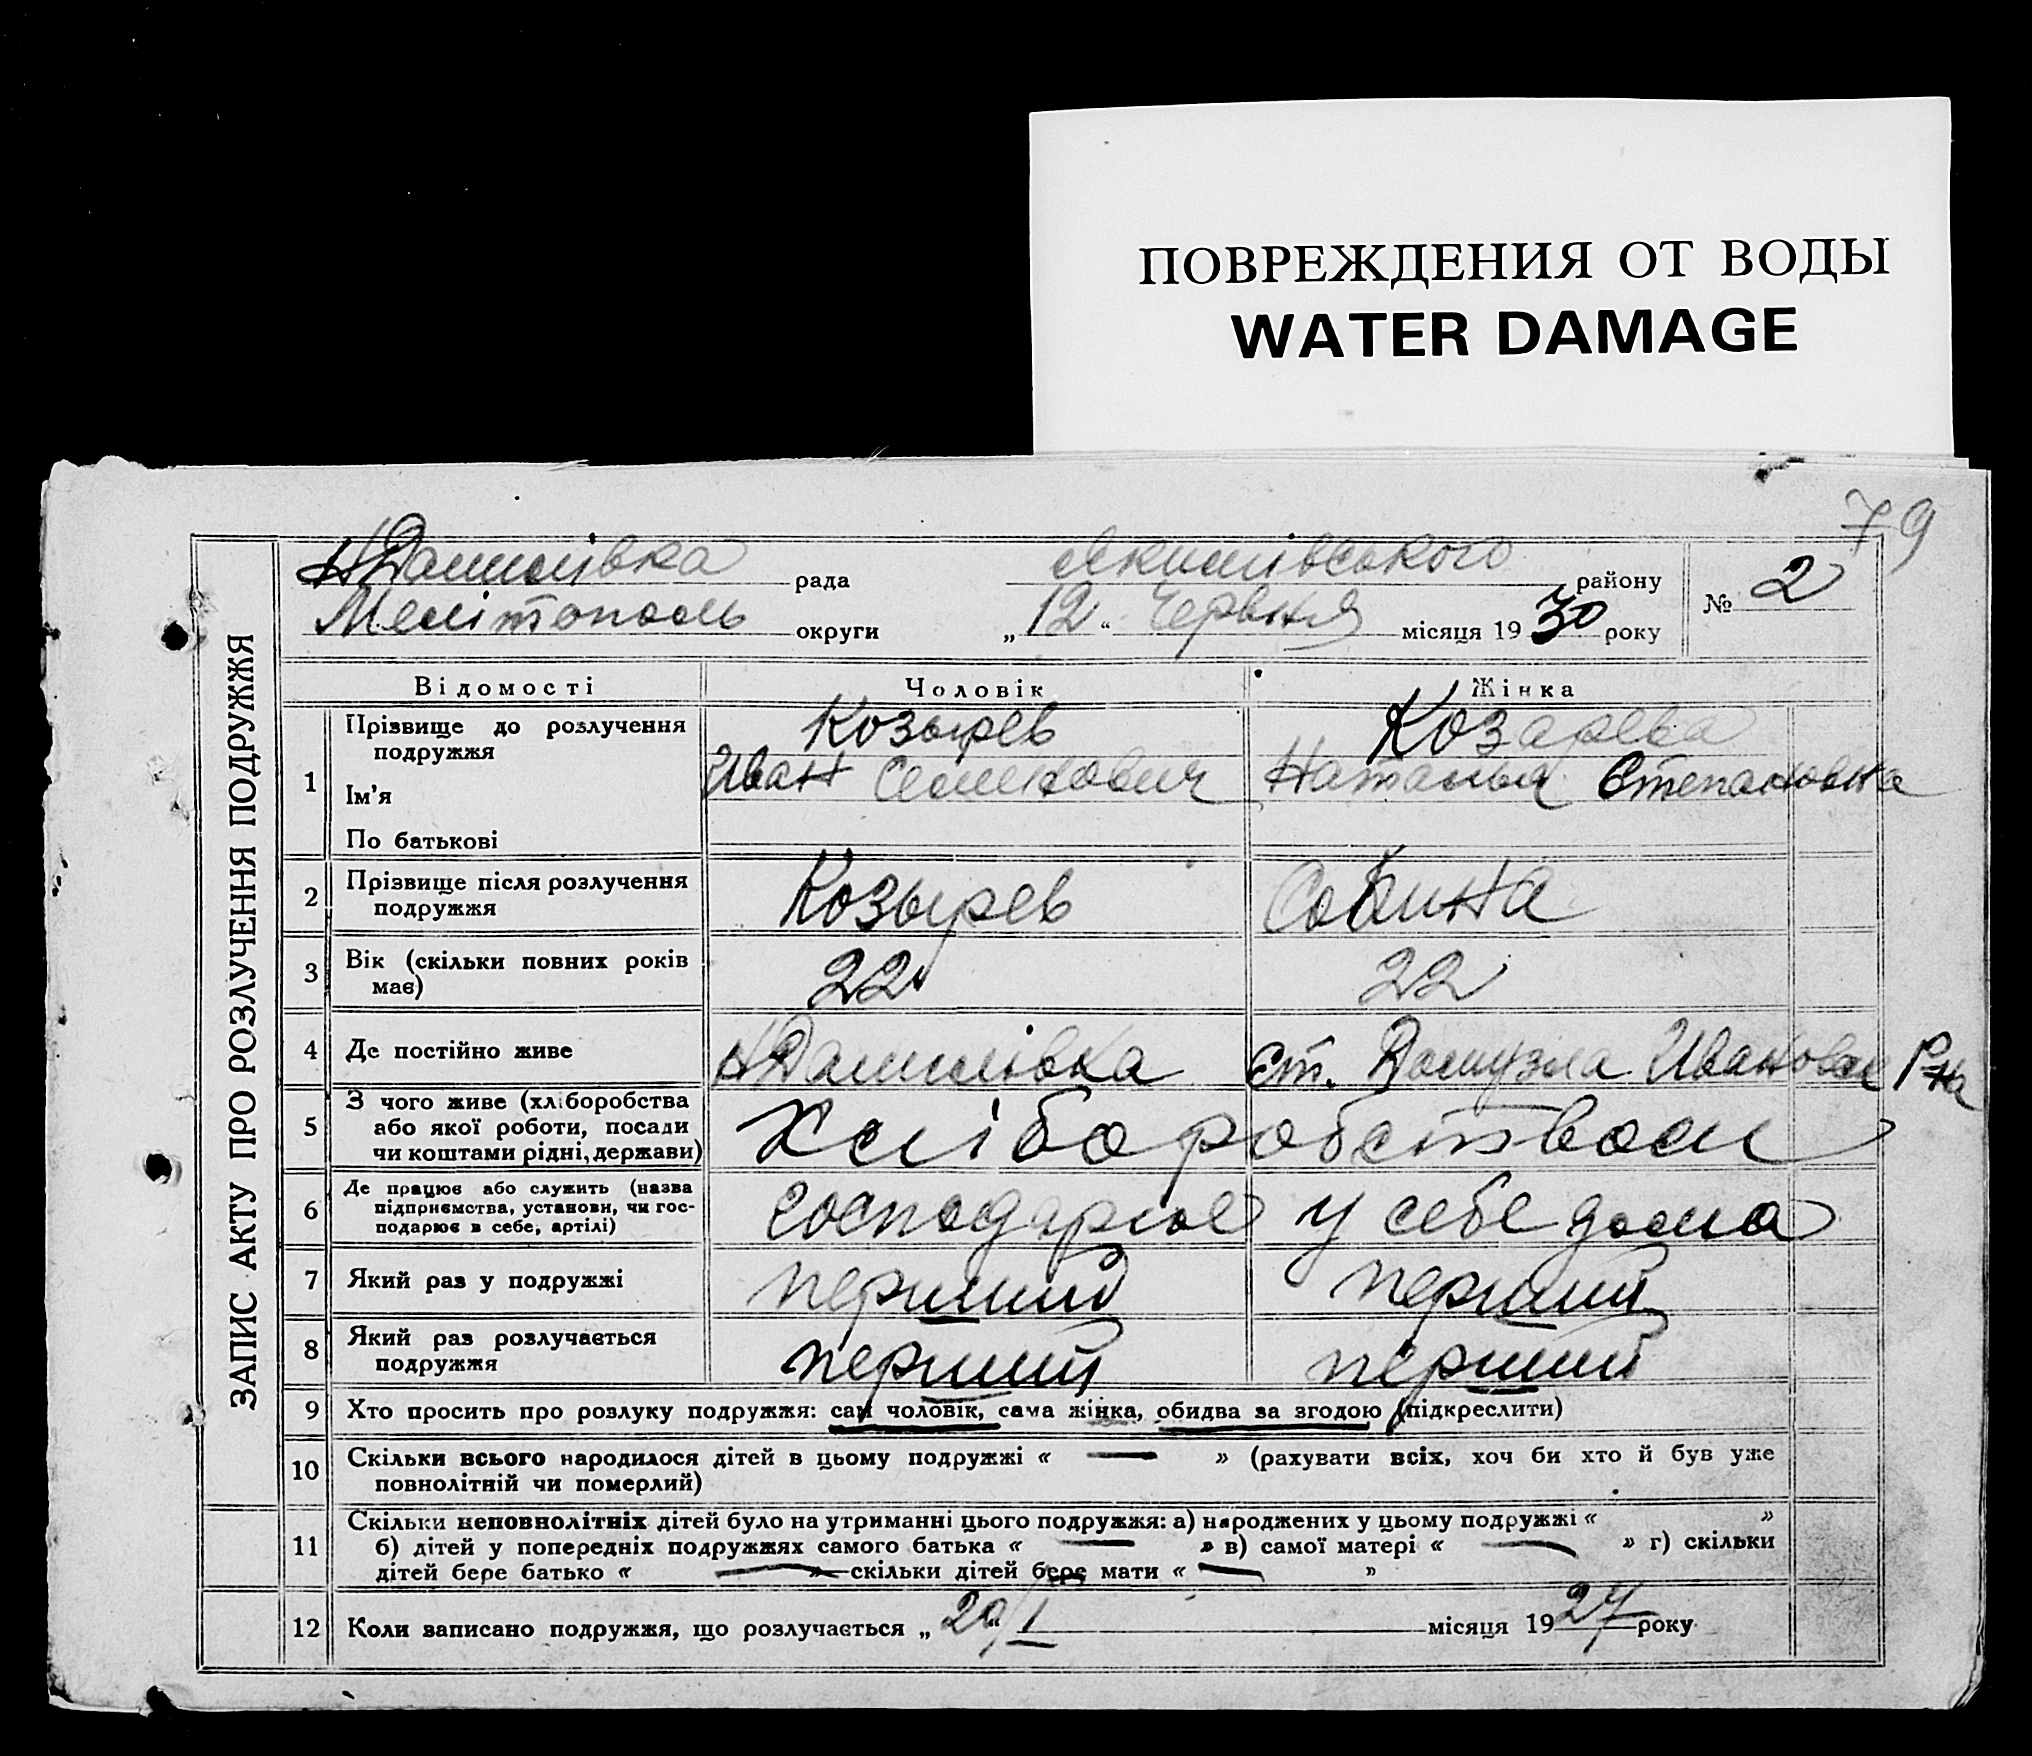 ПОВРЕЖДЕНИЯ ОТ ВОДЫ
WATER DAMAGE
79
ЗАПИС АКТУ ПРО РОЗЛУЧЕННЯ ПОДРУЖЖЯ
НДанилівка рада Якимівського району № 2
Мелітополь округи „12“ Червня місяця 1930 року
Відомості Чоловік Жінка
1 Прізвище до розлучення подружжя Козырев Козарева
Ім'я Иван Семенович Наталья Степановна
По батькові
2 Прізвище після розлучення подружжя Козырев
3 Вік (скільки повних років має) 22 22
4 Де постійно живе НДанилівка Ст. Ивановск Р-на
5 З чого живе (хліборобства або якої роботи, посади чи коштами рідні, держави) Хліборобством
6 Де працює або служить (назва підприємства, установи, чи господарює в себе, артілі) господарює у себе дома
7 Який раз у подружжі перший перший
8 Який раз розлучається подружжя перший перший
9 Хто просить про розлуку подружжя: сам чоловік, сама жінка, обидва за згодою (підкреслити)
10 Скільки всього народилося дітей в цьому подружжі « — » (рахувати всіх, хоч би хто й був уже
повнолітній чи померлий)
11 Скільки неповнолітніх дітей було на утриманні цього подружжя: а) народжених у цьому подружжі « »
б) дітей у попередніх подружжях самого батька « — » в) самої матері « — » г) скільки
дітей бере батько « — » скільки дітей бере мати « — »
12 Коли записано подружжя, що розлучається „29/I місяця 1927 року